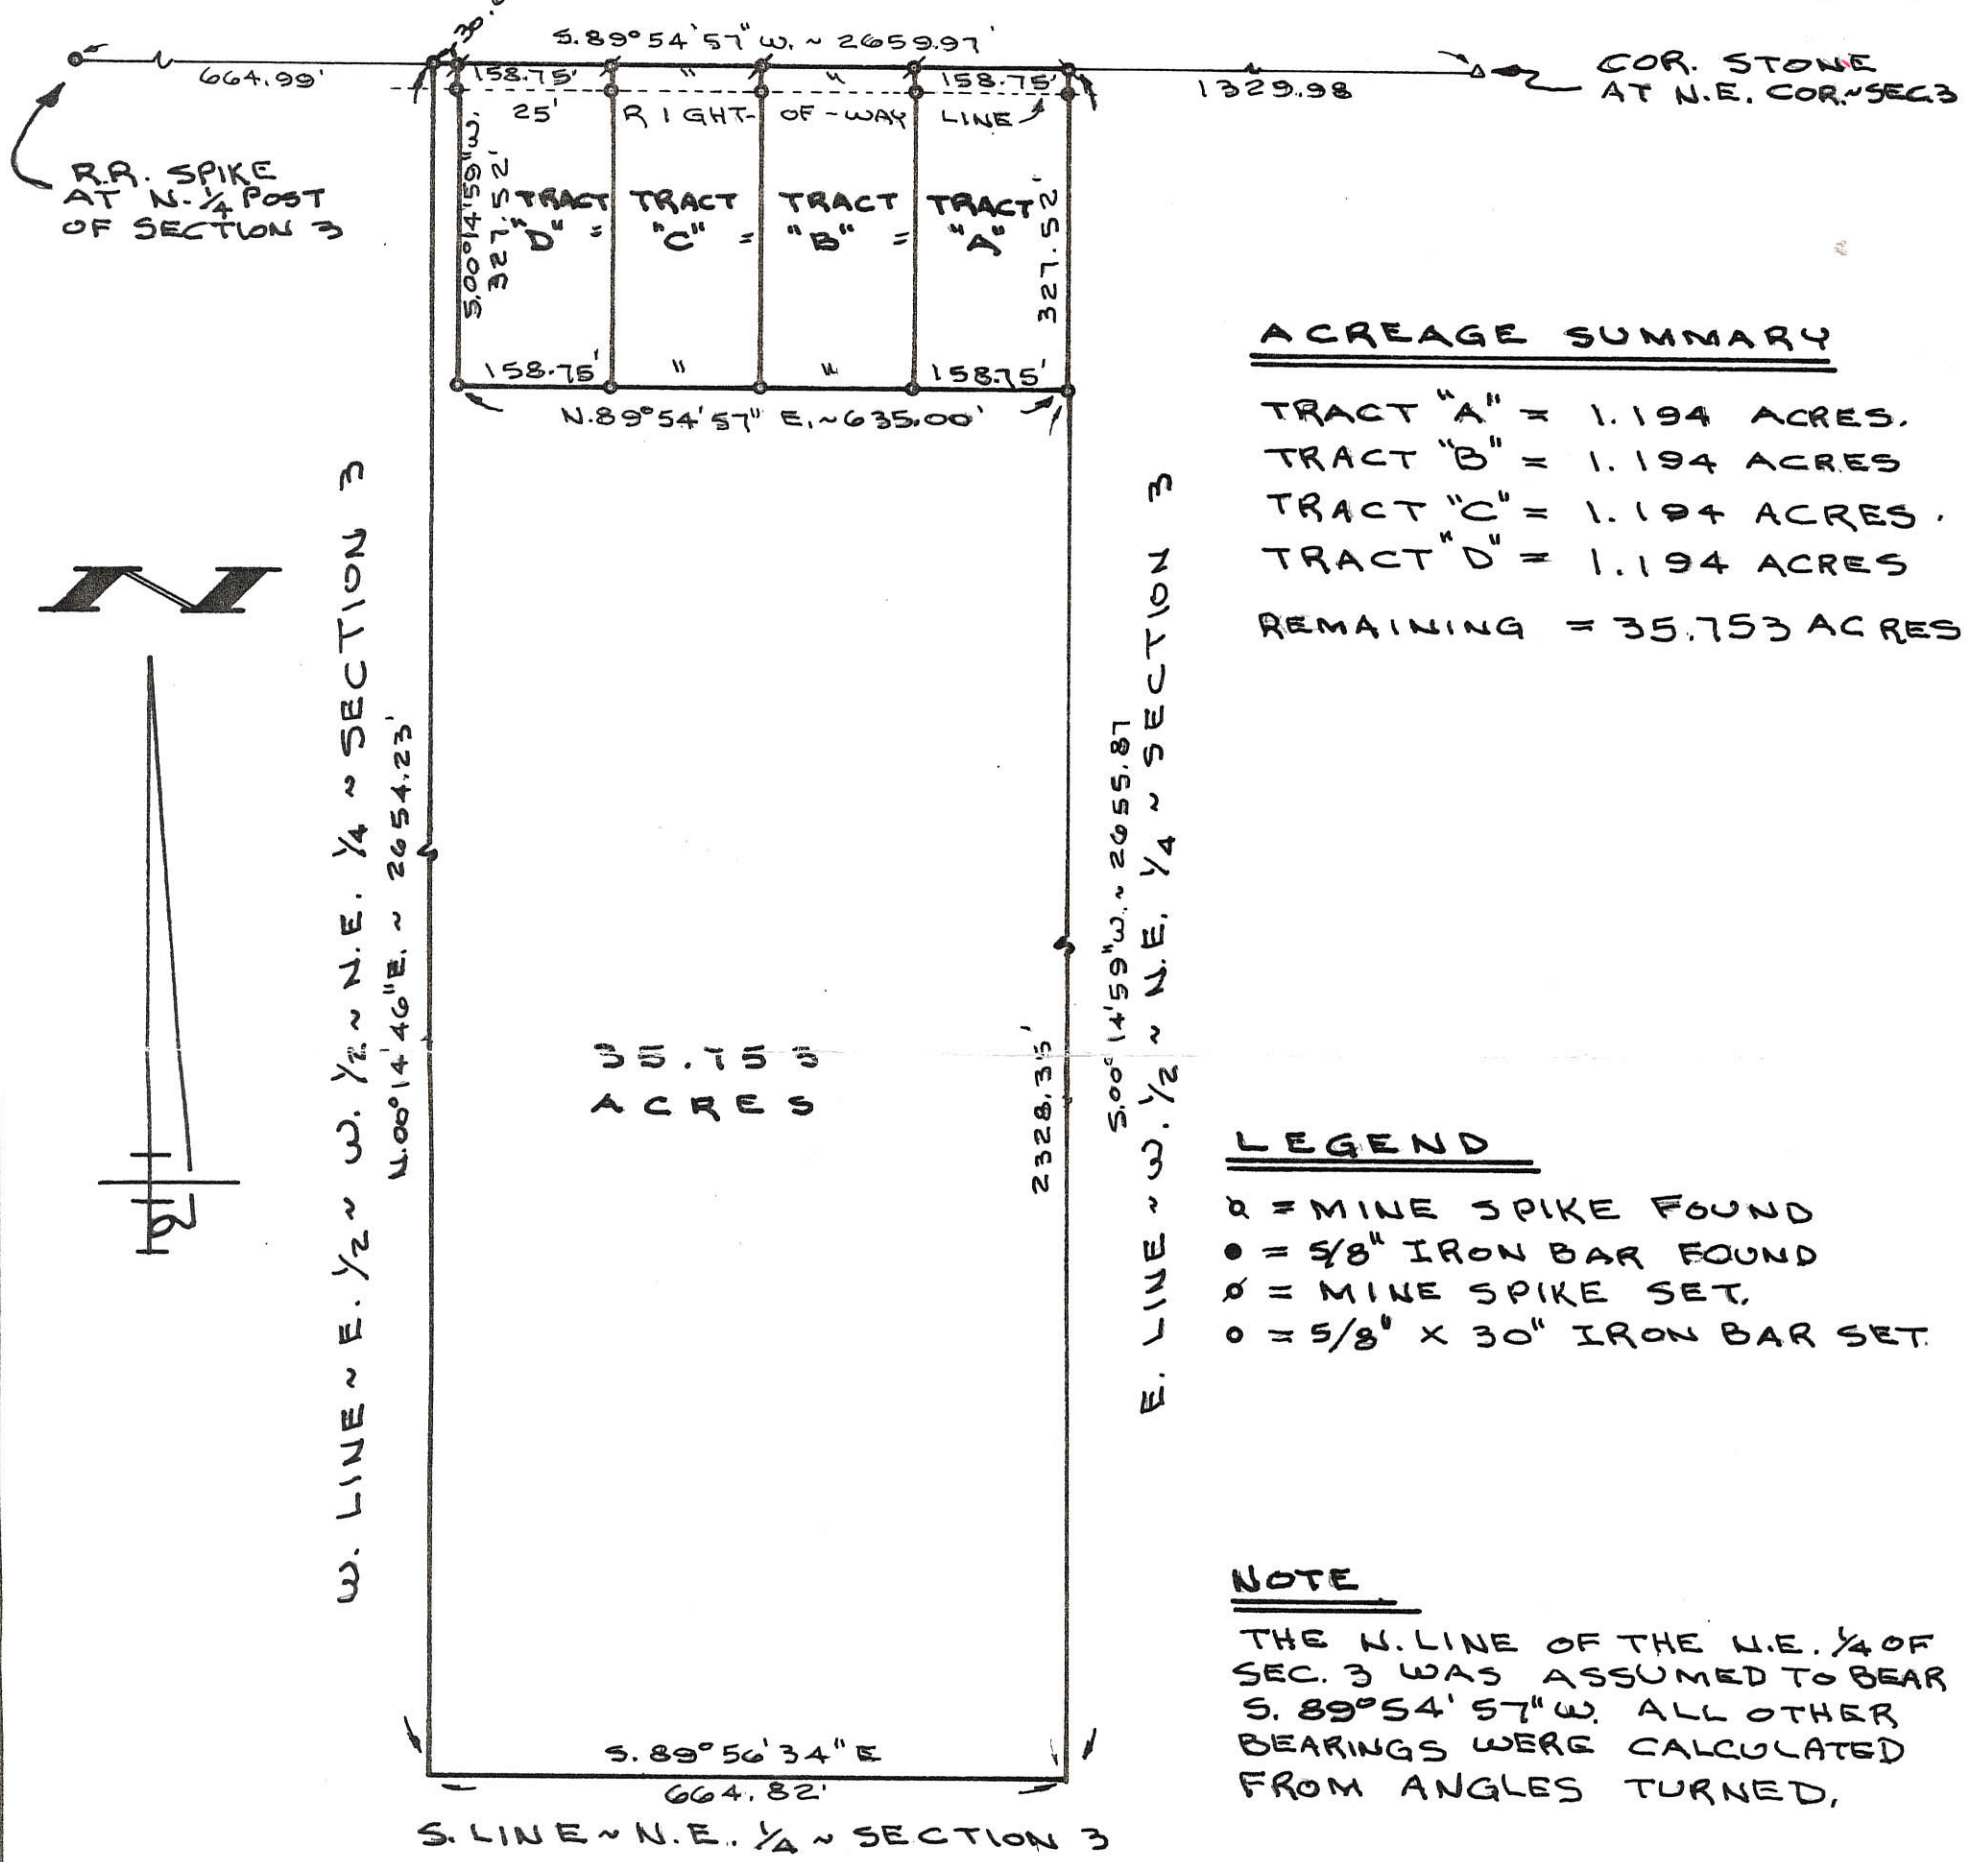 S.89°54'57"W. ~ 2659.97'
664.99'
158.75' " " 158.75'
1329.98
COR. STONE
AT N.E. COR.~SEC.3
25' RIGHT- OF-WAY LINE
R.R. SPIKE
AT N. 1/4 POST
OF SECTION 3
S.00°14'59"W.
327.52'
TRACT "D" =
TRACT "C" =
TRACT "B" =
TRACT "A"
327.52'
158.75' " " 158.75'
N.89°54'57" E.~635.00'
ACREAGE SUMMARY
TRACT "A" = 1.194 ACRES.
TRACT "B" = 1.194 ACRES
TRACT "C" = 1.194 ACRES.
TRACT "D" = 1.194 ACRES
REMAINING = 35.753 ACRES
N
W. LINE ~ E. 1/2 ~ W. 1/2 ~ N.E. 1/4 ~ SECTION 3
N.00°14'46"E. ~ 2654.23'
35.753
ACRES
2328.35'
S.00°14'59"W. ~ 2655.87
E. LINE ~ W. 1/2 ~ N.E. 1/4 ~ SECTION 3
LEGEND
= MINE SPIKE FOUND
● = 5/8" IRON BAR FOUND
ø = MINE SPIKE SET.
○ = 5/8" X 30" IRON BAR SET.
NOTE
THE N. LINE OF THE N.E. 1/4 OF
SEC. 3 WAS ASSUMED TO BEAR
S. 89°54'57"W. ALL OTHER
BEARINGS WERE CALCULATED
FROM ANGLES TURNED.
S. 89°56'34"E
664.82'
S. LINE ~ N.E. 1/4 ~ SECTION 3